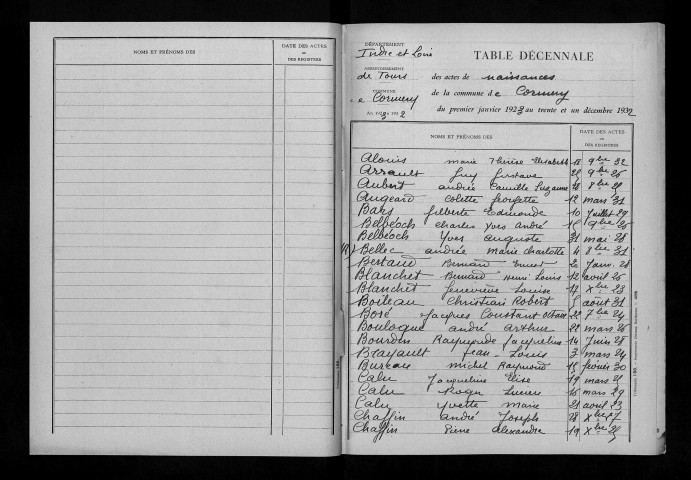 NOMS ET PRÉNOMS DES
DATE DES ACTES
OU
DES REGISTRES
DÉPARTEMENT
Indre et Loire
ARRONDISSEMENT
de Tours
COMMUNE
de Cormery
TABLE DÉCENNALE
des actes de naissances
de la commune de Cormery
du premier janvier 1923 au trente et un décembre 1932
NOMS ET PRÉNOMS DES
DATE DES ACTES
OU
DES REGISTRES
Alouis marie Thérèse Elisabeth 18 9bre 32
Arrault Guy Gustave 9bre 26
Aubert andrée Camille Suzanne 8bre
Augeard Colette Georgette 12 mars 31
Bars Gilberte Edmonde 10 Juillet 29
Belbéoch Charles Yves André 15 9bre
Belbéoch Yves auguste 31 mai 28
Bellec andrée marie Charlotte 4 8bre 31
Bertaud Bernard Ernest 20 Janv. 28
Blanchet Bernard Henri Louis 12 avril 26
Blanchet Geneviève Louise 17 Xbre 23
Boileau Christian Robert 5 août 31
Boré Jacques Constant 22 7bre 24
Boulogne andré arthur 28 mars 26
Bourdin Raymonde Jacqueline 14 Juin 28
Brayault Jean-Louis 3 mars 24
Bureau michel Raymond 15 février 30
Calu Jacqueline Elise 19 mars
Calu Roger Lucien 16 mars 29
Calu Yvette marie 21 avril 23
Chaffin andré Joseph 28 Xbre
Chaffin Pierre Alexandre 19 Xbre